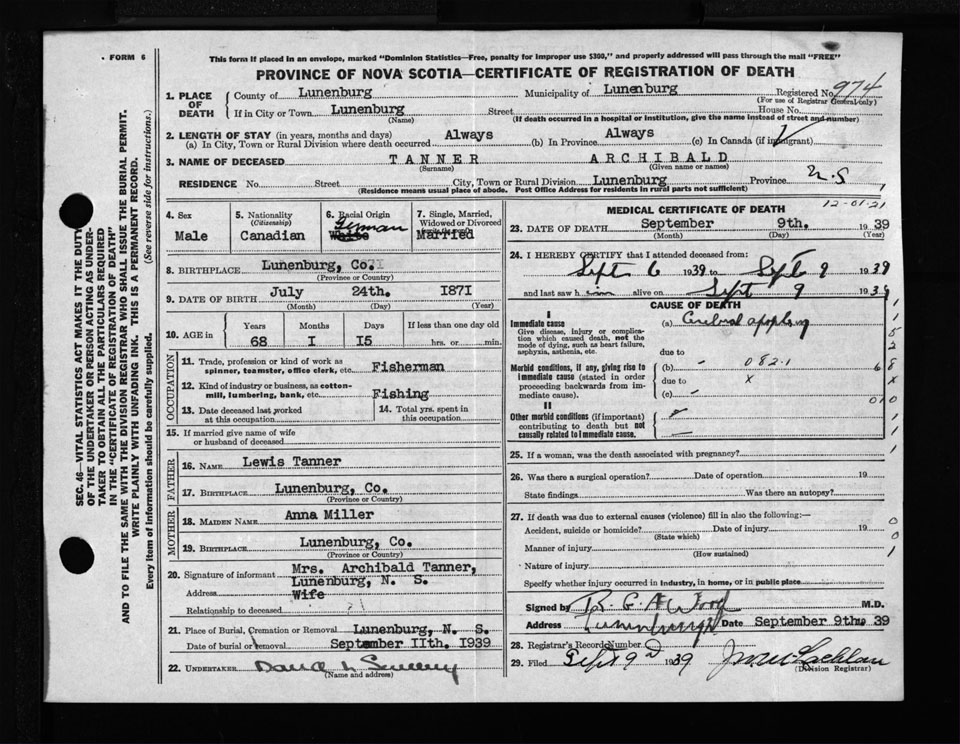 FORM 6
This form if placed in an envelope, marked "Dominion Statistics—Free, penalty for improper use $300," and properly addressed will pass through the mail "FREE"
PROVINCE OF NOVA SCOTIA—CERTIFICATE OF REGISTRATION OF DEATH
SEC. 46—VITAL STATISTICS ACT MAKES IT THE DUTY
OF THE UNDERTAKER OR PERSON ACTING AS UNDER-
TAKER TO OBTAIN ALL THE PARTICULARS REQUIRED
IN THE "CERTIFICATE OF REGISTRATION OF DEATH"
AND TO FILE THE SAME WITH THE DIVISION REGISTRAR WHO SHALL ISSUE THE BURIAL PERMIT.
WRITE PLAINLY WITH UNFADING INK. THIS IS A PERMANENT RECORD.
Every item of information should be carefully supplied. (See reverse side for instructions.)
1. PLACE OF DEATH
County of Lunenburg Municipality of Lunenburg Registered No. 974
(For use of Registrar General only)
If in City or Town Lunenburg Street House No.
(Name) (If death occurred in a hospital or institution, give the name instead of street and number)
2. LENGTH OF STAY (in years, months and days) Always Always
(a) In City, Town or Rural Division where death occurred (b) In Province (c) In Canada (if immigrant)
3. NAME OF DECEASED TANNER ARCHIBALD
(Surname) (Given name or names)
RESIDENCE No. Street City, Town or Rural Division Lunenburg Province N.S
(Residence means usual place of abode. Post Office Address for residents in rural parts not sufficient)
4. Sex
Male
5. Nationality
(Citizenship)
Canadian
6. Racial Origin
German
White
7. Single, Married,
Widowed or Divorced
Married
8. BIRTHPLACE Lunenburg, Co.
(Province or Country)
9. DATE OF BIRTH July 24th. 1871
(Month) (Day) (Year)
10. AGE in
Years Months Days If less than one day old
68 I I5 hrs. or min.
OCCUPATION
11. Trade, profession or kind of work as
spinner, teamster, office clerk, etc. Fisherman
12. Kind of industry or business, as cotton-
mill, lumbering, bank, etc. Fishing
13. Date deceased last worked
at this occupation
14. Total yrs. spent in
this occupation
15. If married give name of wife
or husband of deceased
FATHER
16. NAME Lewis Tanner
17. BIRTHPLACE Lunenburg, Co.
(Province or Country)
MOTHER
18. MAIDEN NAME Anna Miller
19. BIRTHPLACE Lunenburg, Co.
(Province or Country)
20. Signature of informant Mrs. Archibald Tanner,
Address Lunenburg, N. S.
Wife
Relationship to deceased
21. Place of Burial, Cremation or Removal Lunenburg, N. S.
Date of burial or removal September IIth. I939
22. UNDERTAKER
(Name and address)
12-01-21
MEDICAL CERTIFICATE OF DEATH
23. DATE OF DEATH September 9th. 1939
(Month) (Day) (Year)
24. I HEREBY CERTIFY that I attended deceased from:
Sept 6 1939 to Sept 9 1939
and last saw him alive on Sept 9 1939
CAUSE OF DEATH
I
Immediate cause (a) Cerebral apoplexy
Give disease, injury or complica-
tion which caused death, not the
mode of dying, such as heart failure,
asphyxia, asthenia, etc.
due to
Morbid conditions, if any, giving rise to
immediate cause (stated in order
proceeding backwards from im-
mediate cause).
(b) 082.1
due to x
(c)
II
Other morbid conditions (if important)
contributing to death but not
causally related to immediate cause.
1
1
5
2
6 8
x
0 1 0
1
1
1
25. If a woman, was the death associated with pregnancy?
26. Was there a surgical operation? Date of operation 19
State findings Was there an autopsy?
27. If death was due to external causes (violence) fill in also the following:—
Accident, suicide or homicide? Date of injury 19
(State which)
Manner of injury
(How sustained)
Nature of injury
Specify whether injury occurred in industry, in home, or in public place
0
0
1
Signed by R. G. A Wood M.D.
Address Lunenburg Date September 9th 1939
28. Registrar's Record Number
29. Filed Sept 9 1939 J W McLachlan
(Division Registrar)